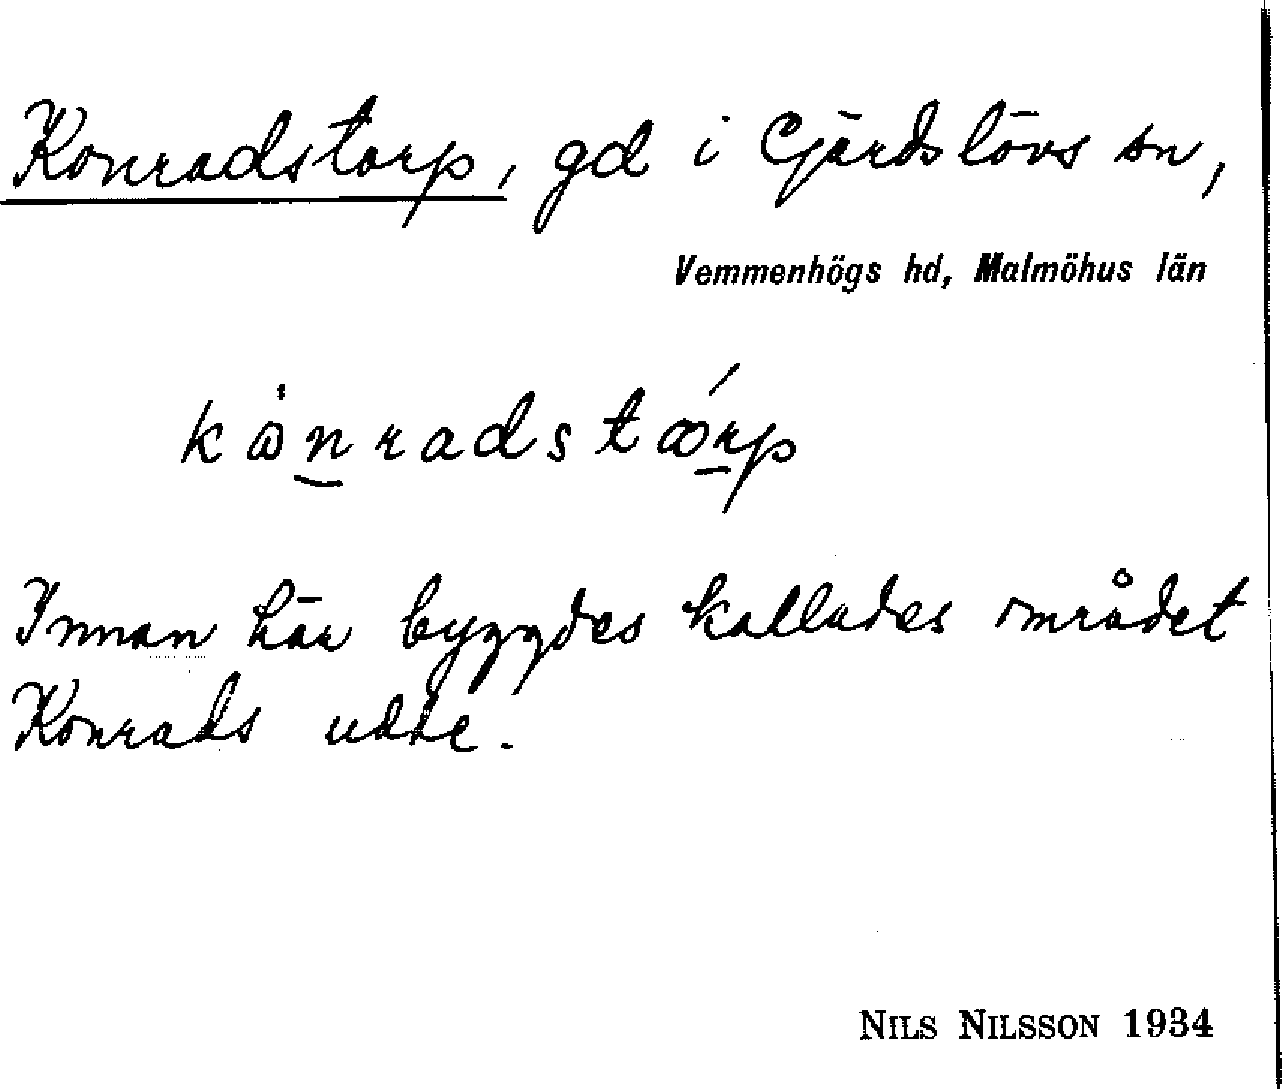 Konradstorp, gd i Gjärdslövs sn,
Vemmenhögs hd, Malmöhus län
Innan här byggdes kallades området
Konrads udde.
NILS NILSSON 1934